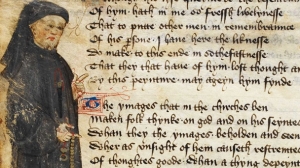 Of hym hath in me so fressh lyvelynesse
That to putte other men in remembraunce
Of his psone I haue here the liknesse
Do make to this ende in sothefastnesse
That they that haue of hym lost thought an
By this peynture may ageyn hym fynde
The ymages that in the chirches ben
Maken folk thynke on god and on his seyntes
Whan they the ymages beholden and seen
Wher as unsight of hem causeth restreynte
Of thoughtes goode Whan a thyng depeynt